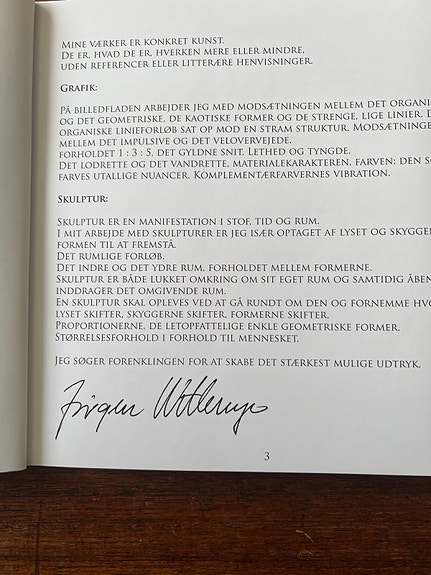 Mine værker er konkret kunst.
De er, hvad de er, hverken mere eller mindre,
uden referencer eller litterære henvisninger.
Grafik:
På billedfladen arbejder jeg med modsætningen mellem det organi
og det geometriske, de kaotiske former og de strenge, lige linier. D
organiske linieforløb sat op mod en stram struktur. Modsætninge
mellem det impulsive og det velovervejede.
forholdet 1 : 3 : 5, det gyldne snit. Lethed og tyngde.
Det lodrette og det vandrette, materialekarakteren, farven: den so
farves utallige nuancer. Komplementærfarvernes vibration.
Skulptur:
Skulptur er en manifestation i stof, tid og rum.
I mit arbejde med skulpturer er jeg især optaget af lyset og skygge
formen til at fremstå.
Det rumlige forløb.
Det indre og det ydre rum, forholdet mellem formerne.
Skulptur er både lukket omkring om sit eget rum og samtidig åben
inddrager det omgivende rum.
En skulptur skal opleves ved at gå rundt om den og fornemme hvo
lyset skifter, skyggerne skifter, formerne skifter.
Proportionerne, de letopfattelige enkle geometriske former.
Størrelsesforhold i forhold til mennesket.
Jeg søger forenklingen for at skabe det stærkest mulige udtryk.
Jørgen
3